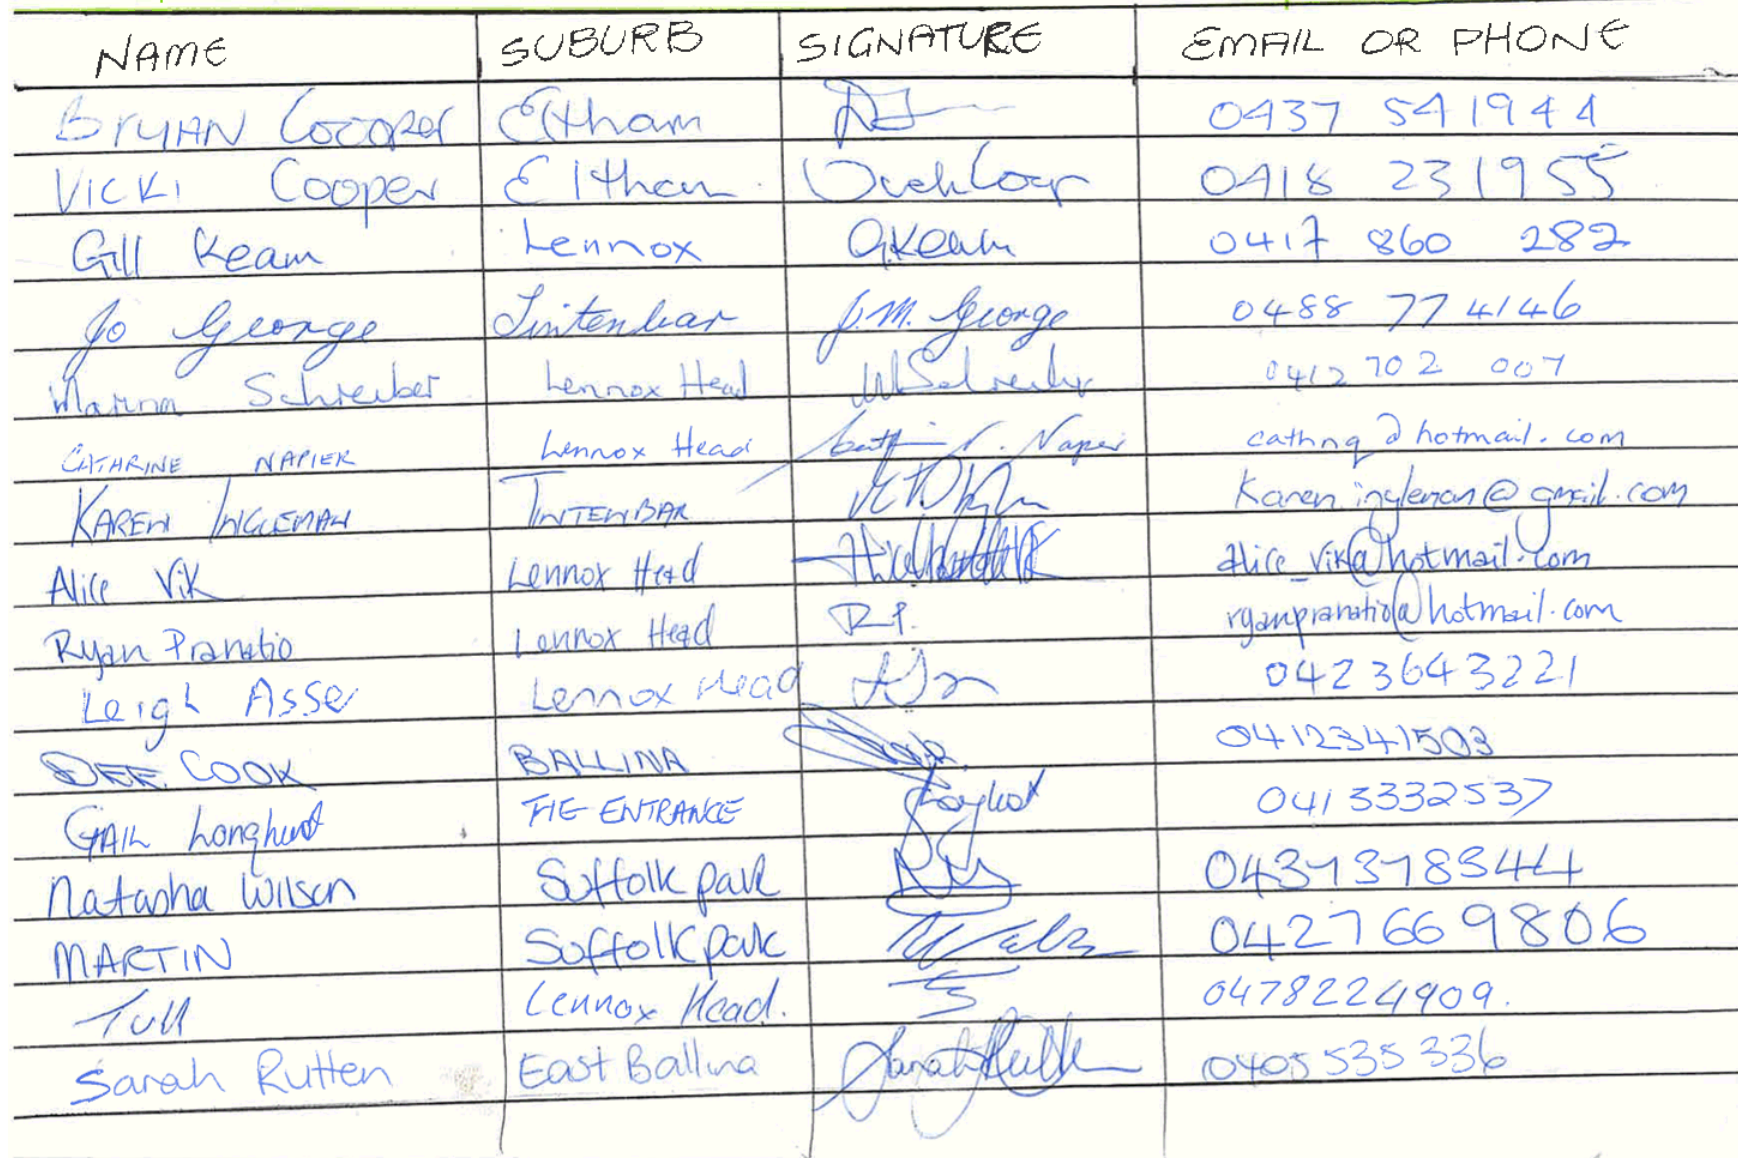 NAME SUBURB SIGNATURE EMAIL OR PHONE
BRYAN Cooper Eltham 0437 541944
VICKI Cooper Eltham 0418 231955
Gill Keam Lennox G.Keam 0417 860 282
Jo George Tintenbar J.M. George 0488 774146
Marina Schreiber Lennox Head M Schreiber 0412 702 007
CATHRINE NAPIER Lennox Head Napier cathnq@hotmail.com
KAREN INGLEMAN TINTENBAR Karen.ingleman@gmail.com
Alice Vik Lennox Head alice_vik@hotmail.com
Ryan Pranatio Lennox Head R.P. ryanpranatio@hotmail.com
Leigh Asser Lennox Head 0423643221
DEE COOK BALLINA 0412341503
GAIL Longhurst THE ENTRANCE 0413332537
Natasha Wilson Suffolk park 0437378344
MARTIN Suffolk park 0427669806
Lennox Head. 0478224909.
Sarah Rutten East Ballina Sarah Rutten 0405 535 336